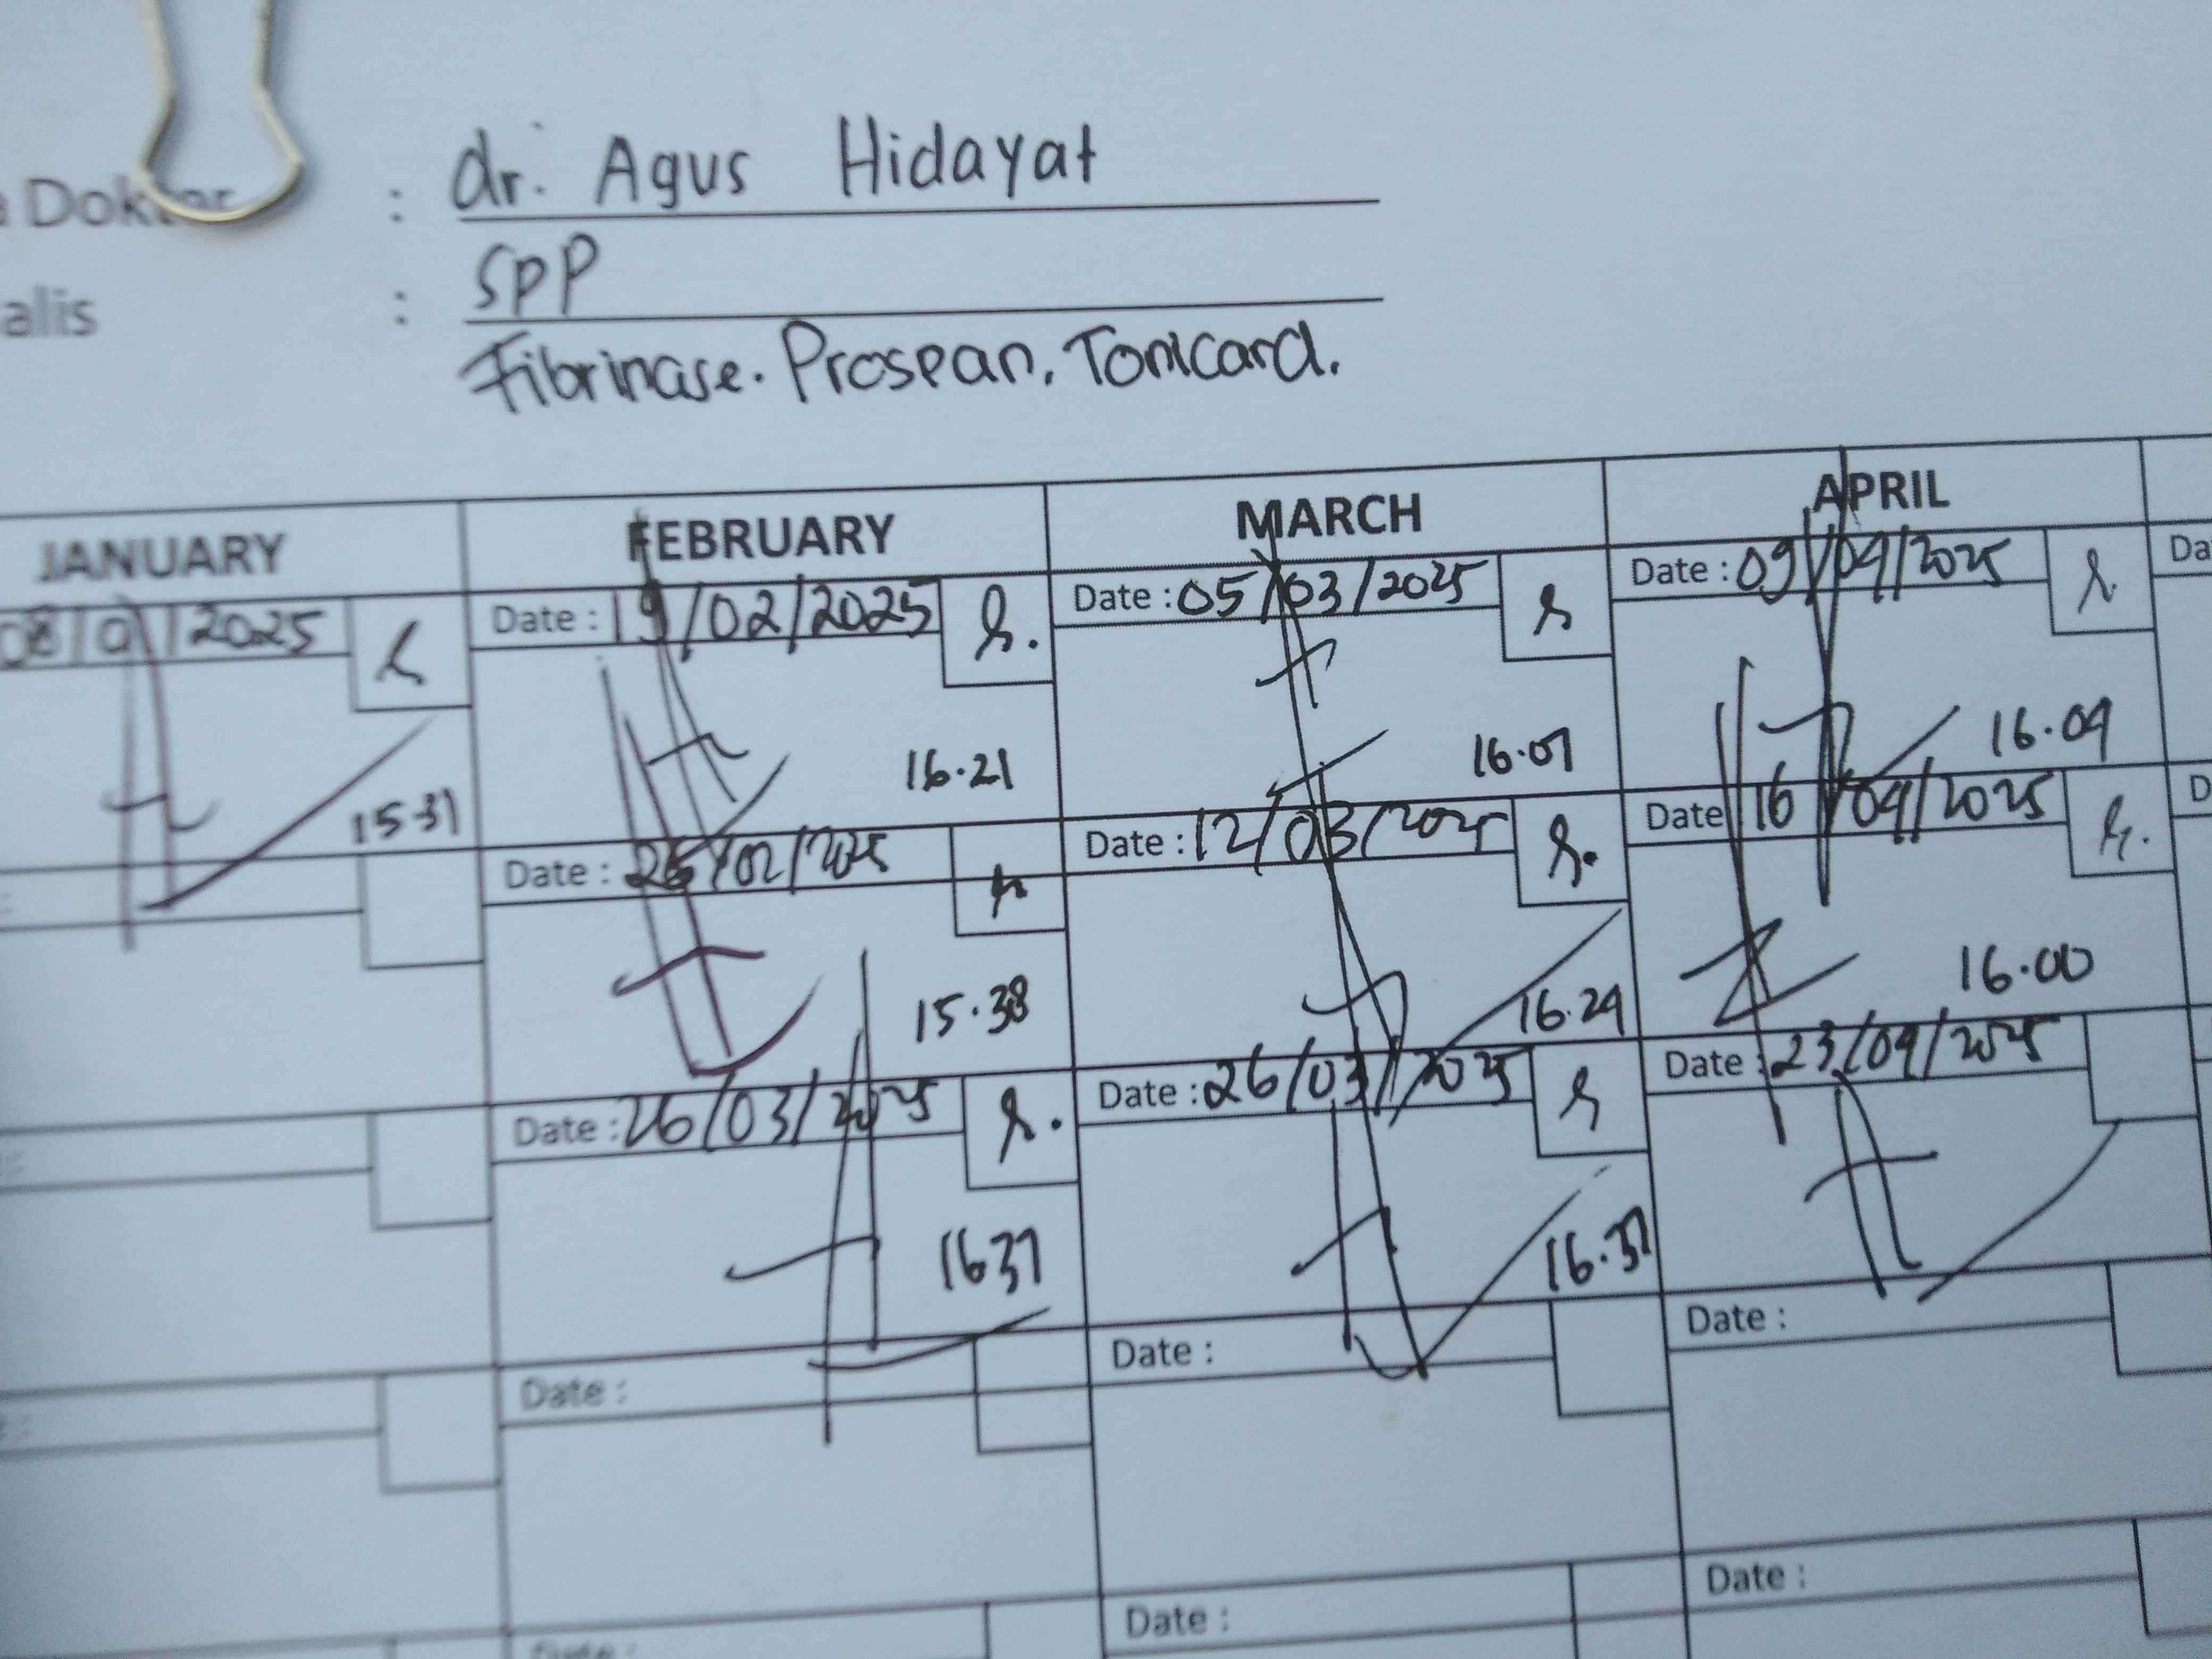 Dokter : dr. Agus Hidayat
alis : SPP
Fibrinase. Prospan, Tonicard.
JANUARY FEBRUARY MARCH APRIL
08/01/2025 Date : 19/02/2025 Date : 05/03/2025 Date : 09/04/2025 Da
15 37 16.21 16.07 16.09
Date : 26/02/2025 Date : 12/03/2025 Date 16/04/2025 D
15.38 16.29 16.00
Date : 26/03/2025 Date : 26/03/2025 Date : 23/04/2025
16 37 16.37
Date : Date : Date :
Date : Date :